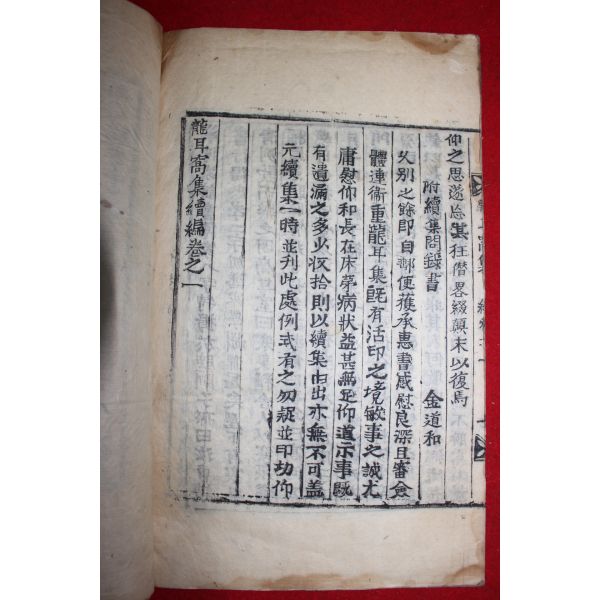 仰之思遂忘其狂僭畧綴顚末以復焉
附續集問錄書　金道和
乆別之餘即自郵便獲承惠書感慰良深且審僉
體連衛重龍耳集旣有活印之境敏事之誠尤
庸慰仰和長在床第病狀益甚無足仰道示事旣
有遺漏之多少収拾則以續集由出亦無不可盖
元續集一時並刊此處例或有之勿疑並印切仰
龍耳窩集續編卷之一